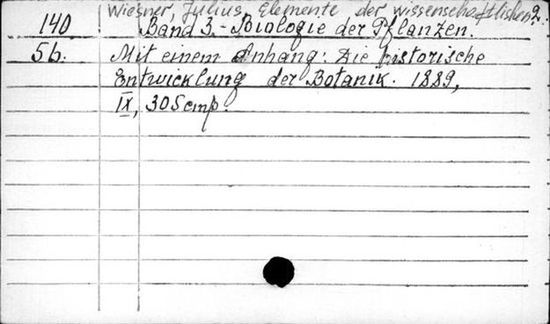 Wiesner, Julius, Elemente der wissenschaftlichen 2.
140 Band 3.- Biologie der Pflanzen.
56. Mit einem Anhang: Die historische
Entwicklung der Botanik. 1889,
IX, 305 стр.